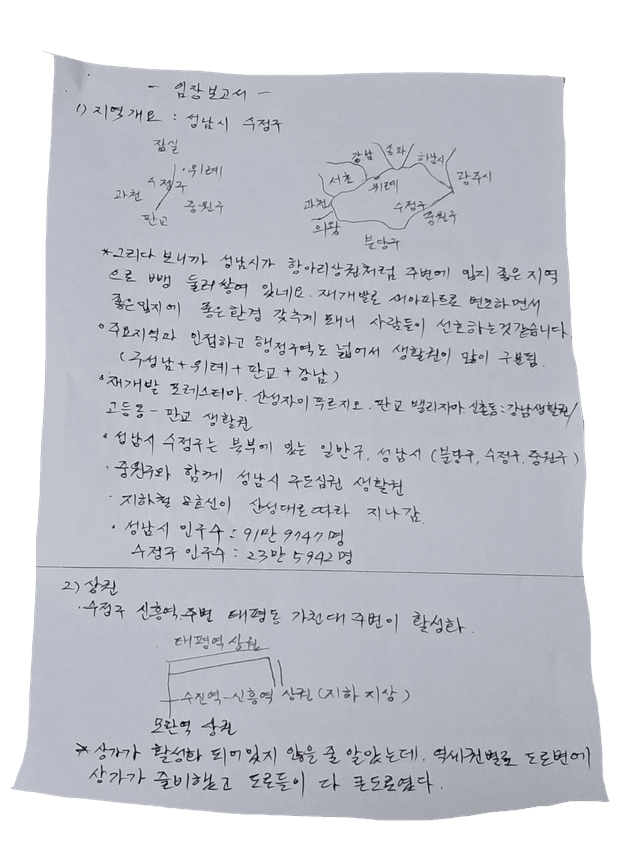 - 임장보고서 -
1) 지역개요 : 성남시 수정구
잠실
·위례
수정구
과천
중원구
판교
강남 송파 하남시
서초 위례 광주시
과천 수정구
의왕 중원구
분당구
*그러다 보니까 성남시가 항아리상권처럼 주변에 입지 좋은 지역
으로 뺑 둘러쌓여 있네요. 재개발로 새아파트로 변모하면서
좋은입지에 좋은환경 갖추게 돼니 사람들이 선호하는것같습니다.
·주요지역과 인접하고 행정구역도 넓어서 생활권이 많이 구분됨.
(구성남+위례+판교+강남)
·재개발 포레스티아. 산성자이푸르지오. 판교 밸리자이. 신촌동:강남생활권/
고등동- 판교 생활권
·성남시 수정구는 북부에 있는 일반구, 성남시 (분당구, 수정구, 중원구)
·중원구와 함께 성남시 구도심권 생활권
·지하철 8호선이 산성대로따라 지나감.
·성남시 인구수 : 91만 9747명
수정구 인구수 : 23만 5942명
2) 상권
·수정구 신흥역.주변 태평동 가천대 주변이 활성화.
태평역 상권
수진역-신흥역 상권 (지하 지상)
모란역 상권
*상가가 활성화 되어있지 않을 줄 알았는데, 역세권별로 도로변에
상가가 즐비했고 도로들이 다 큰도로였다.